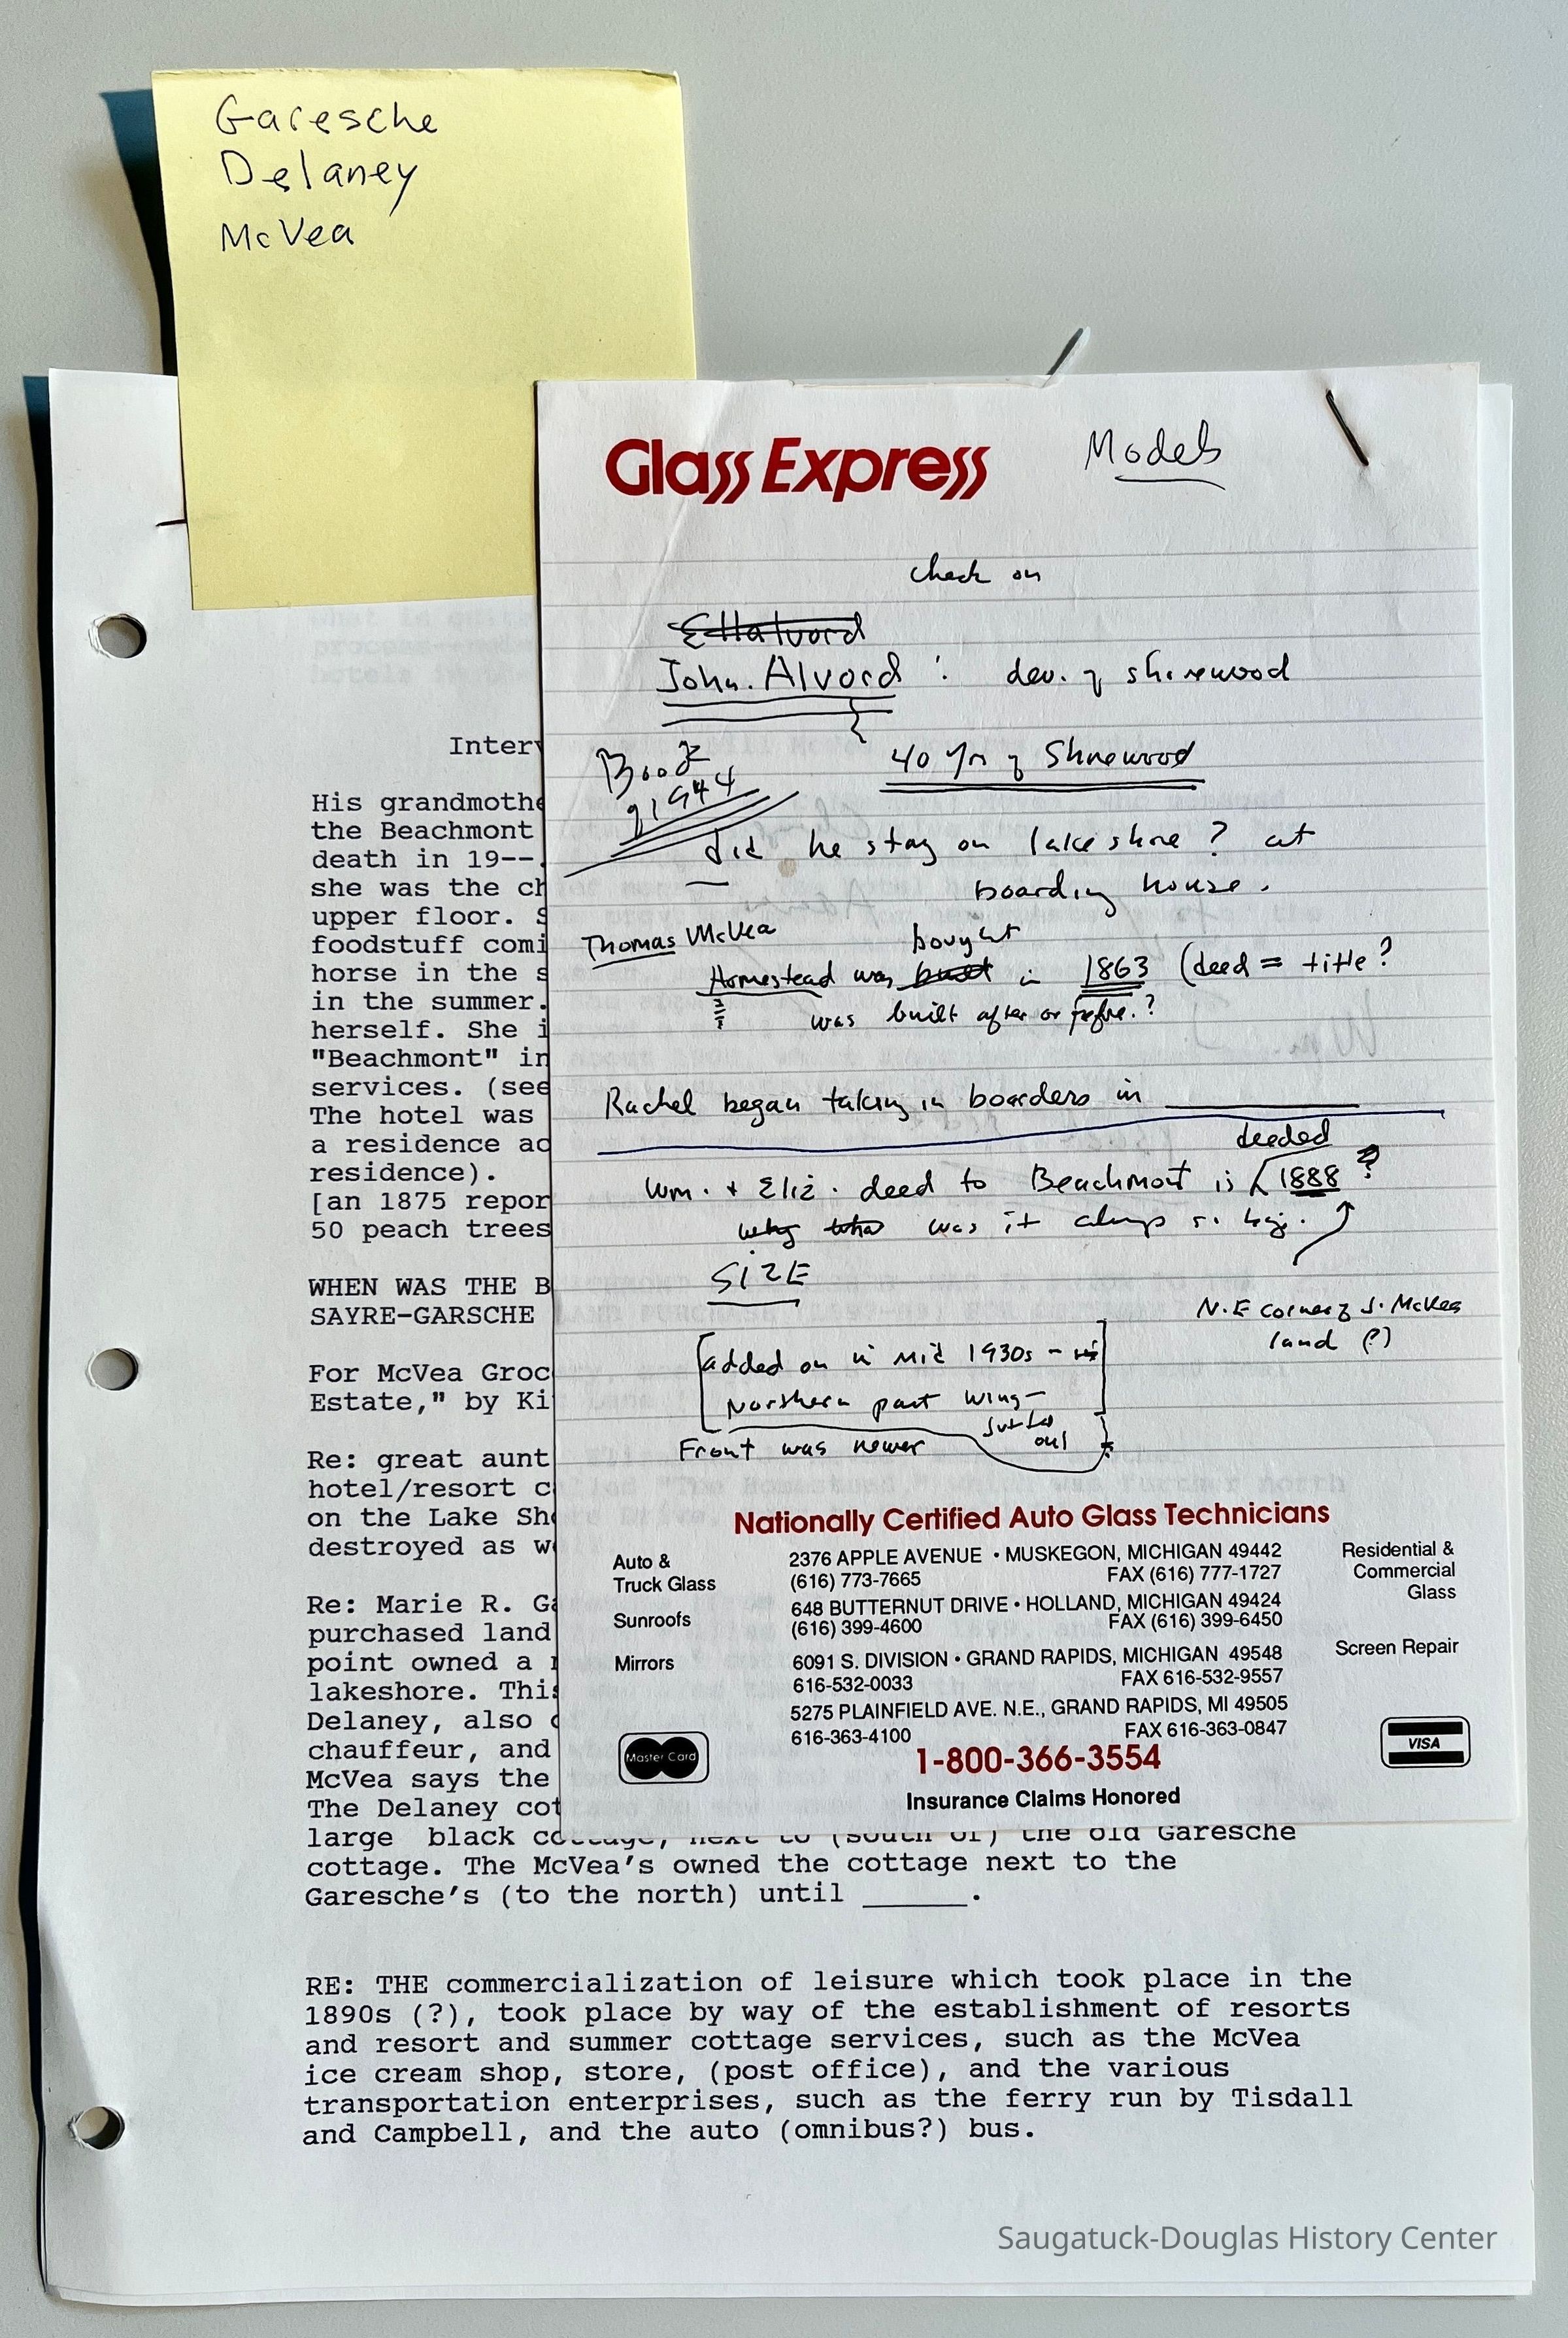 Garesche
Delaney
McVea
Glass Express
Models
check on
John. Alvord : dev. of shorewood
40 yrs of Shorewood
Book
1944
did he stay on lakeshore? at
boarding house.
Thomas McVea
bought
Homestead was built in 1863 (deed = title?
was built after or before.?
Rachel began taking in boarders in
deeded
Wm. + Eliz. deed to Beachmont is 1888?
why who was it always so big.
SIZE
N.E corner of J. McVea
land (?)
added on in mid 1930s -
Northern part wing-
Front was newer
Nationally Certified Auto Glass Technicians
Auto &
Truck Glass
Sunroofs
Mirrors
2376 APPLE AVENUE • MUSKEGON, MICHIGAN 49442
(616) 773-7665 FAX (616) 777-1727
648 BUTTERNUT DRIVE • HOLLAND, MICHIGAN 49424
(616) 399-4600 FAX (616) 399-6450
6091 S. DIVISION • GRAND RAPIDS, MICHIGAN 49548
616-532-0033 FAX 616-532-9557
5275 PLAINFIELD AVE. N.E., GRAND RAPIDS, MI 49505
616-363-4100 FAX 616-363-0847
1-800-366-3554
Insurance Claims Honored
Residential &
Commercial
Glass
Screen Repair
Master Card
VISA
Interv
His grandmothe
the Beachmont
death in 19--.
she was the ch
upper floor. S
foodstuff comi
horse in the s
in the summer.
herself. She i
"Beachmont" in
services. (see
The hotel was
a residence ac
residence).
[an 1875 repor
50 peach trees
WHEN WAS THE B
SAYRE-GARSCHE
For McVea Groc
Estate," by Ki
Re: great aunt
hotel/resort c
on the Lake Sh
destroyed as w
Re: Marie R. Ga
purchased land
point owned a
lakeshore. This
Delaney, also
chauffeur, and
McVea says the
The Delaney cot
large black cottage, next to (south of) the old Garesche
cottage. The McVea's owned the cottage next to the
Garesche's (to the north) until ______.
RE: THE commercialization of leisure which took place in the
1890s (?), took place by way of the establishment of resorts
and resort and summer cottage services, such as the McVea
ice cream shop, store, (post office), and the various
transportation enterprises, such as the ferry run by Tisdall
and Campbell, and the auto (omnibus?) bus.
Saugatuck-Douglas History Center